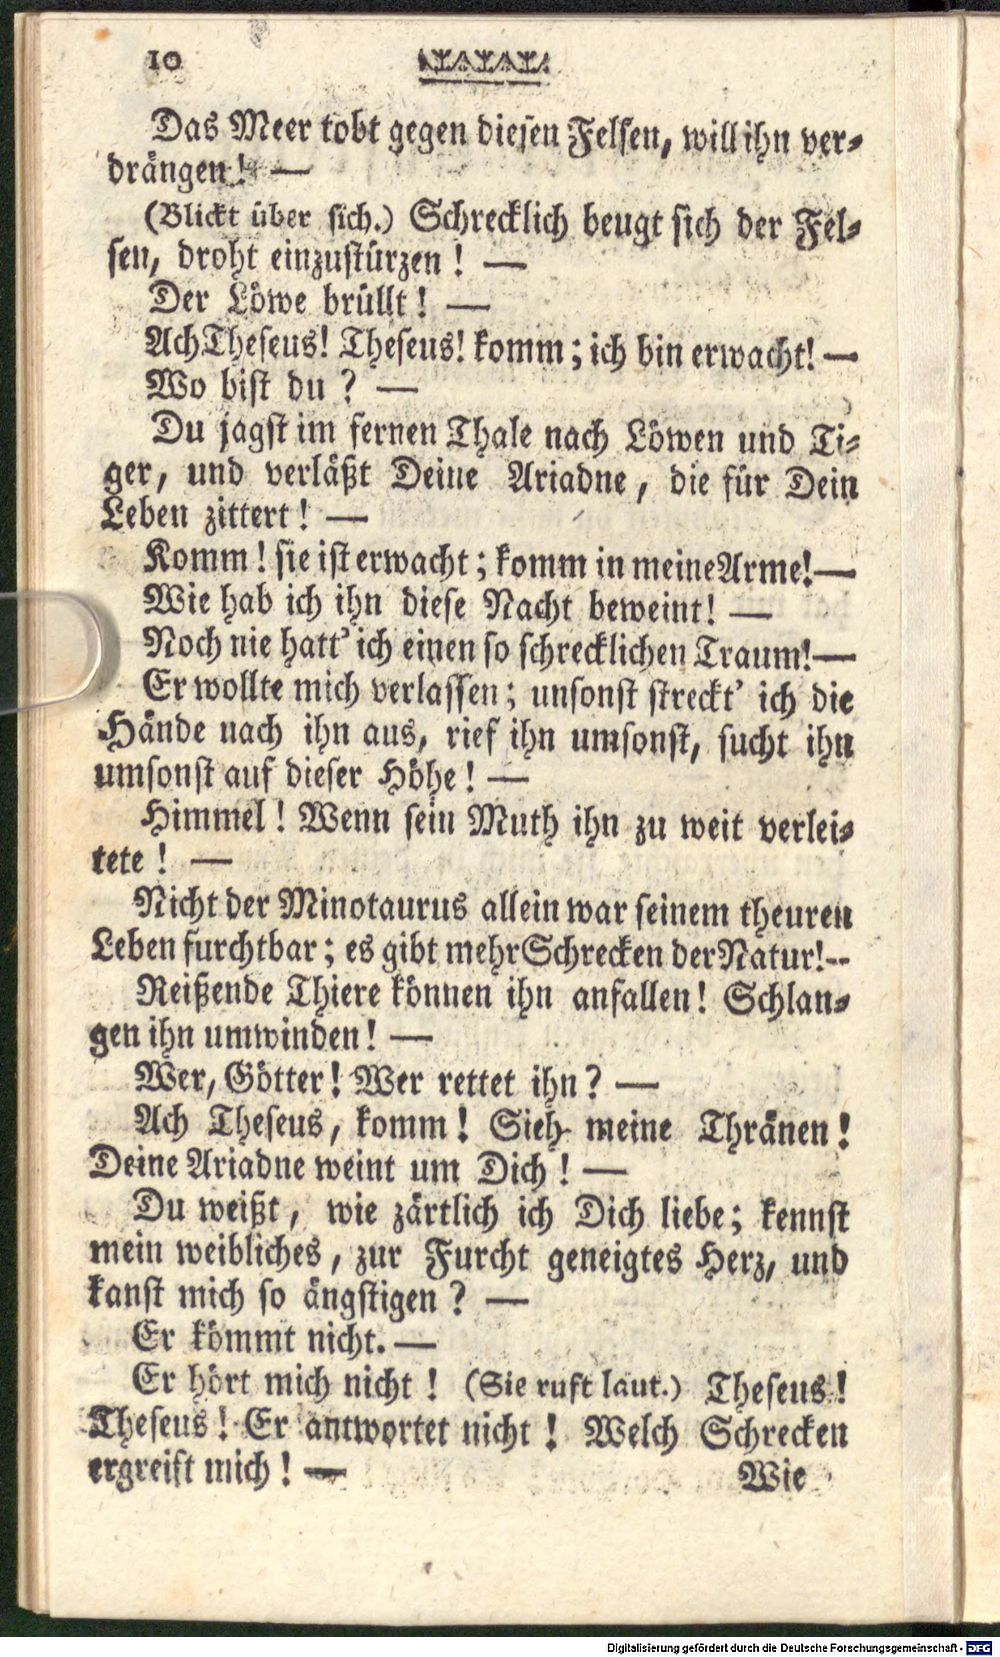 10
Das Meer tobt gegen diesen Felsen, will ihn ver-
drängen! —
(Blickt über sich.) Schrecklich beugt sich der Fel-
sen, droht einzustürzen! —
Der Löwe brüllt! —
Ach Theseus! Theseus! komm; ich bin erwacht! —
Wo bist du? —
Du jagst im fernen Thale nach Löwen und Ti-
ger, und verläßt Deine Ariadne, die für Dein
Leben zittert! —
Komm! sie ist erwacht; komm in meine Arme! —
Wie hab ich ihn diese Nacht beweint! —
Noch nie hatt' ich einen so schrecklichen Traum! —
Er wollte mich verlassen; unsonst streckt' ich die
Hände nach ihn aus, rief ihn umsonst, sucht ihn
umsonst auf dieser Höhe! —
Himmel! Wenn sein Muth ihn zu weit verlei-
tete! —
Nicht der Minotaurus allein war seinem theuren
Leben furchtbar; es gibt mehr Schrecken der Natur! --
Reißende Thiere können ihn anfallen! Schlan-
gen ihn umwinden! —
Wer, Götter! Wer rettet ihn? —
Ach Theseus, komm! Sieh meine Thränen!
Deine Ariadne weint um Dich! —
Du weißt, wie zärtlich ich Dich liebe; kennst
mein weibliches, zur Furcht geneigtes Herz, und
kanst mich so ängstigen? —
Er kömmt nicht. —
Er hört mich nicht! (Sie ruft laut.) Theseus!
Theseus! Er antwortet nicht! Welch Schrecken
ergreift mich! —
Wie
Digitalisierung gefördert durch die Deutsche Forschungsgemeinschaft - DFG